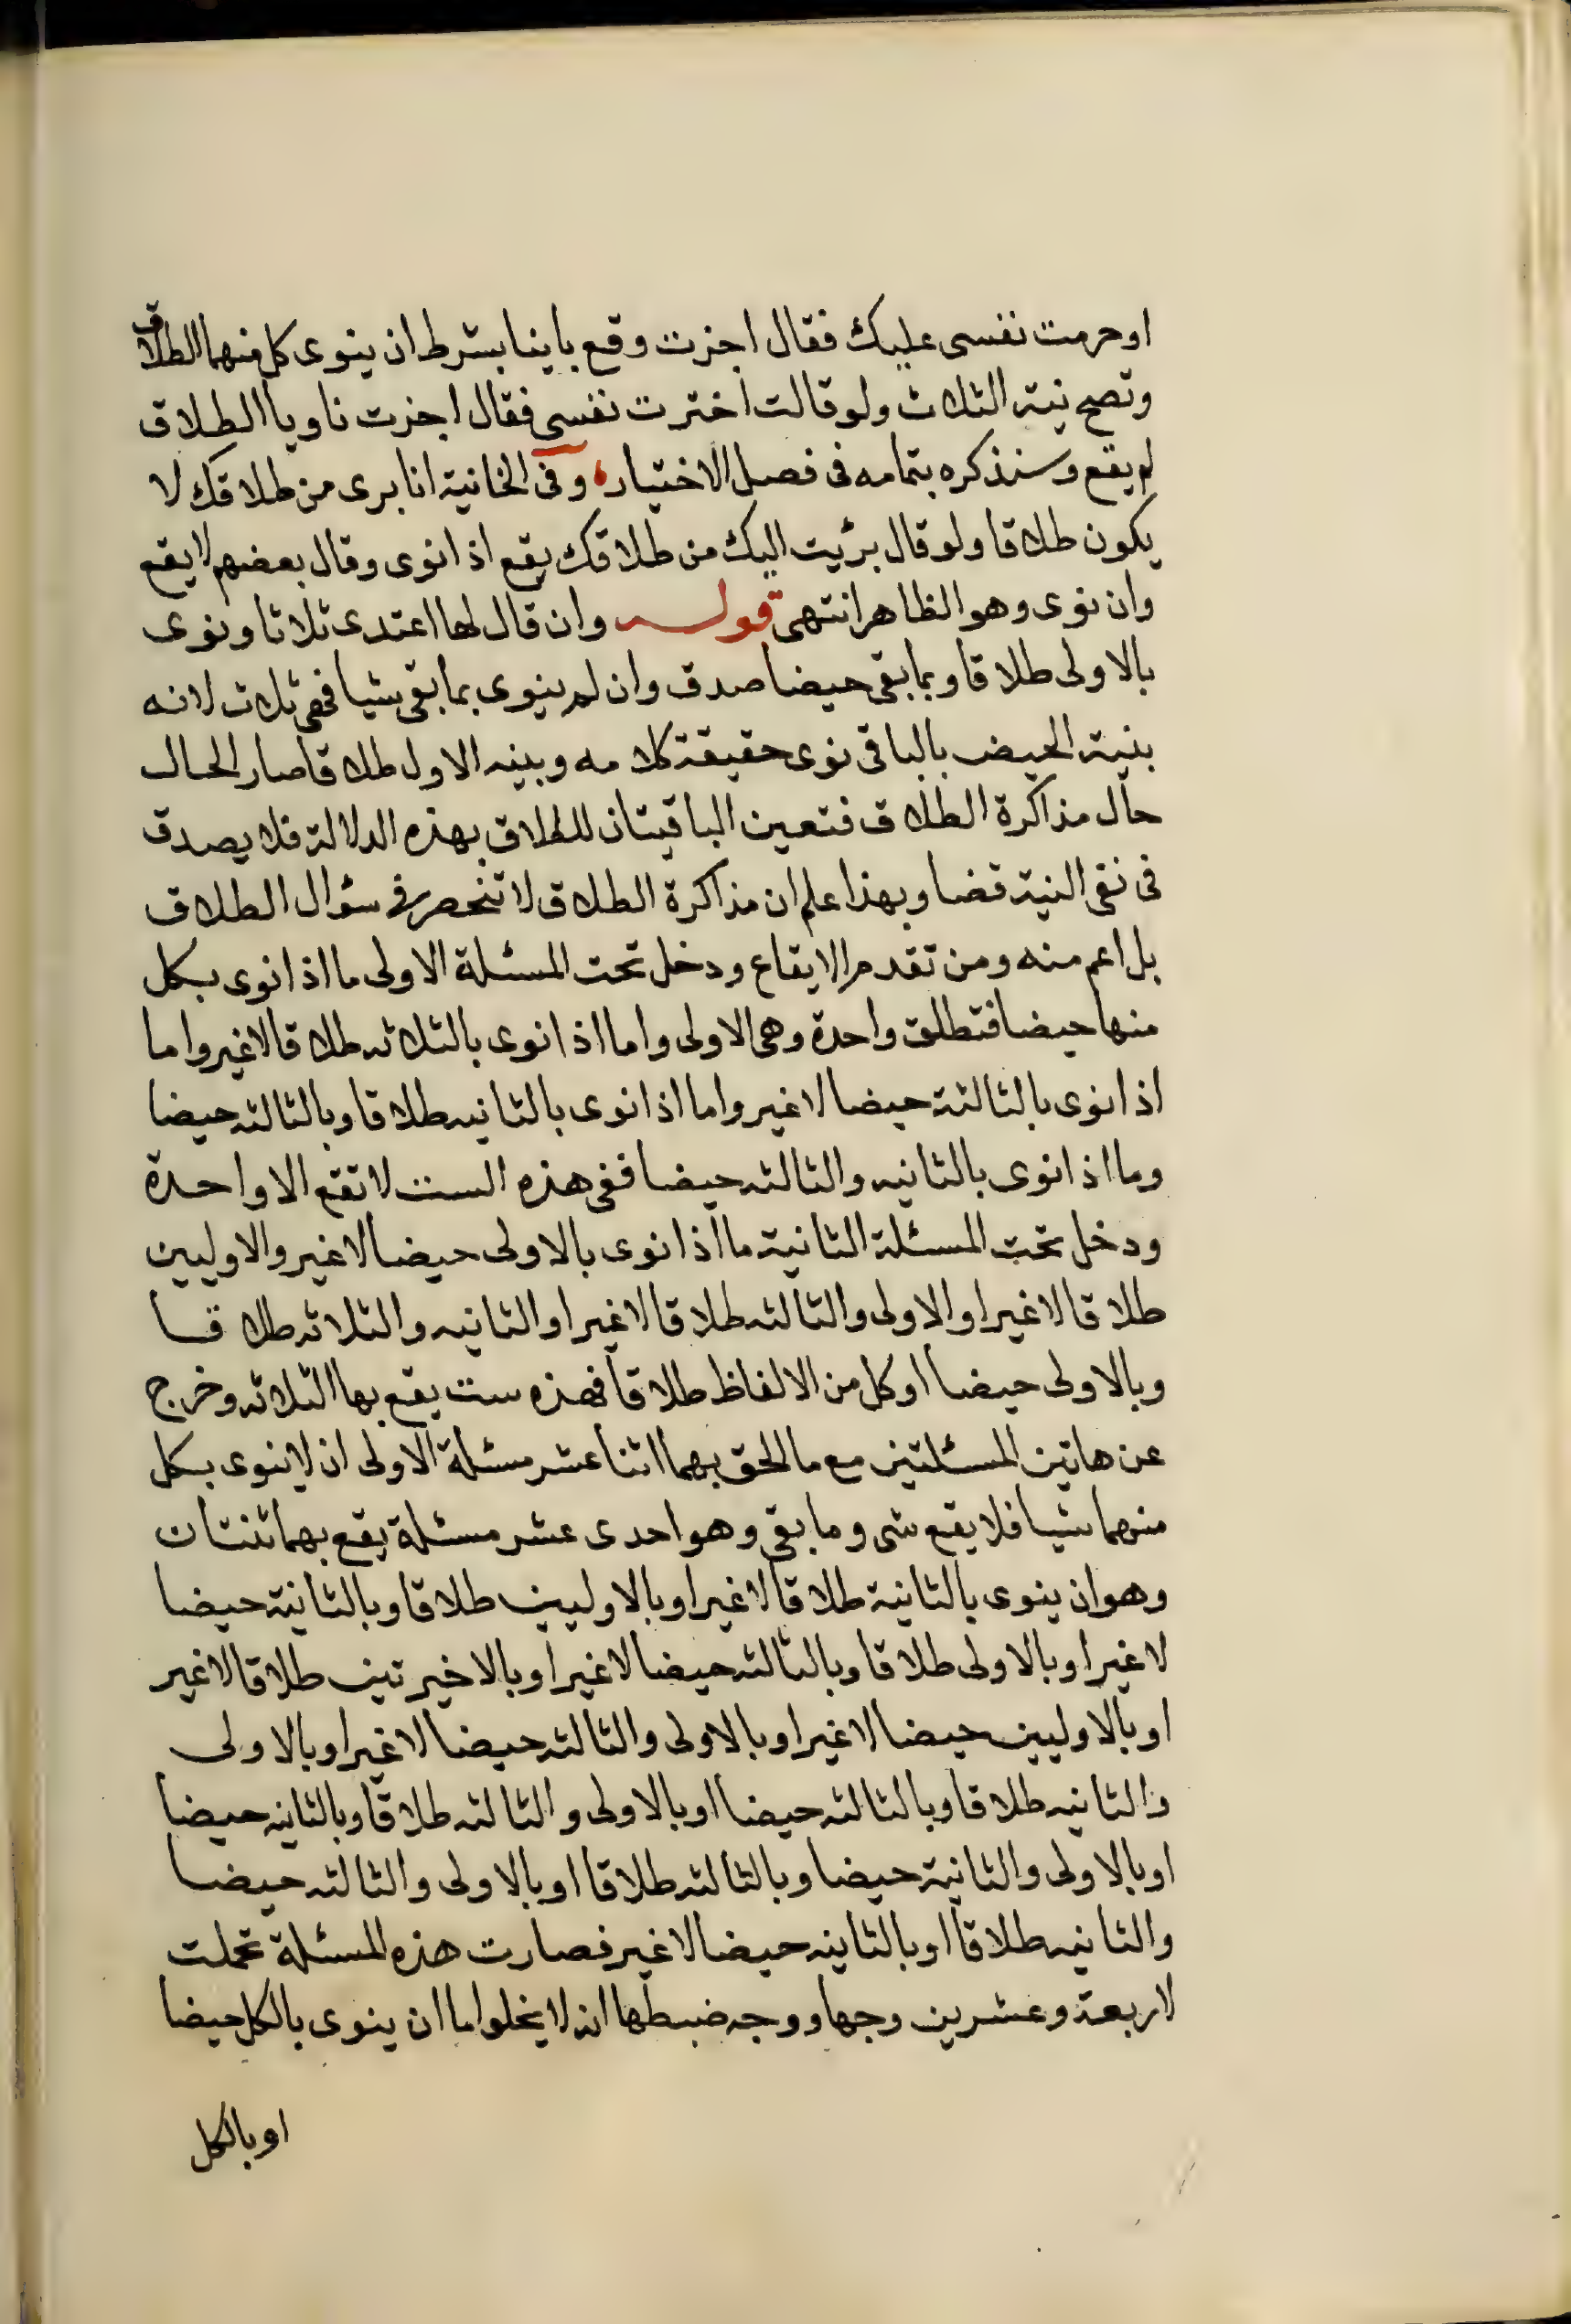 او حرمت نفسى عليك فقال اجزت وقع باينا بشرط ان ينوى كل منهما الطلاق
وتصح نية الثلاث ولو قالت اخترت نفسى فقال اجزت ناويا الطلاق
لم يقع وسنذكره بتمامه فى فصل الاختيار، وفى الخانية انا برى من طلاقك لا
يكون طلاقا ولو قال برئيت اليك من طلاقك يقع اذا نوى وقال بعضهم لا يقع
وان نوى وهو الظاهر انتهى قوله وان قال لها اعتدى ثلاثا ونوى
بالاولى طلاقا وبما بقى حيضا صدق وان لم ينوى بما بقى شيا فهى ثلاث لانه
بنية الحيض بالباقى نوى حقيقة كلامه وبنيه الاول طلاقا صار الحال
حال مذاكرة الطلاق فتعين الباقيتان للطلاق بهذه الدلالة فلا يصدق
فى نفى النية قضا وبهذا علم ان مذاكرة الطلاق لا تنحصر فى سؤال الطلاق
بل اعم منه ومن تقدم الايقاع ودخل تحت المسئلة الاولى ما اذا نوى بكل
منها حيضا فتطلق واحدة وهى الاولى واما اذا نوى بالثلاثه طلاقا لاغير واما
اذا نوى بالثالثة حيضا لاغير واما اذا نوى بالثانيه طلاقا وبالثالثه حيضا
وما اذا نوى بالثانيه والثالثه حيضا ففى هذه الست لا تقع الا واحدة
ودخل تحت المسئلة الثانية ما اذا نوى بالاولى حيضا لاغير والاوليين
طلاقا لاغير او الاولى والثالثه طلاقا لاغير او الثانيه والثلاثه طلاقا
وبالاولى حيضا او كل من الالفاظ طلاقا فهذه ست يقع بها الثلاثه وخرج
عن هاتين المسئلتين مع ما الحق بهما اثنا عشر مسئلة الاولى ان لا ينوى بكل
منهما شيا فلا يقع شى وما بقى وهو احدى عشر مسئلة يقع بهما ثنتان
وهو ان ينوى بالثانية طلاقا لاغير او بالاوليين طلاقا وبالثانية حيضا
لاغير او بالاولى طلاقا وبالثالثه حيضا لاغير او بالاخيرتين طلاقا لاغير
او بالاوليين حيضا لاغير او بالاولى والثالثه حيضا لاغير او بالاولى
والثانيه طلاقا وبالثالثه حيضا او بالاولى والثالثه طلاقا وبالثانيه حيضا
او بالاولى والثانية حيضا وبالثالثه طلاقا او بالاولى والثالثه حيضا
والثانيه طلاقا او بالثانيه حيضا لاغير فصارت هذه المسئلة تحملت
لاربعة وعشرين وجها ووجه ضبطها انه لا يخلوا اما ان ينوى بالكل حيضا
او بالكل